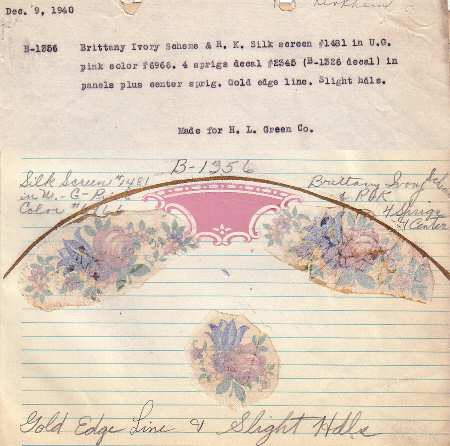 Dec. 9, 1940
B-1356 Brittany Ivory Scheme & R. K. Silk screen #1481 in U.G.
pink color #6966. 4 sprigs decal #2345 (B-1326 decal) in
panels plus center sprig. Gold edge line. Slight hdls.
Made for H. L. Green Co.
B-1356
Silk Screen #1481
in U.-G-Pink
Color #
Brittany Ivory
& RK
4 Sprigs
Center
Gold Edge Line & Slight Hdls